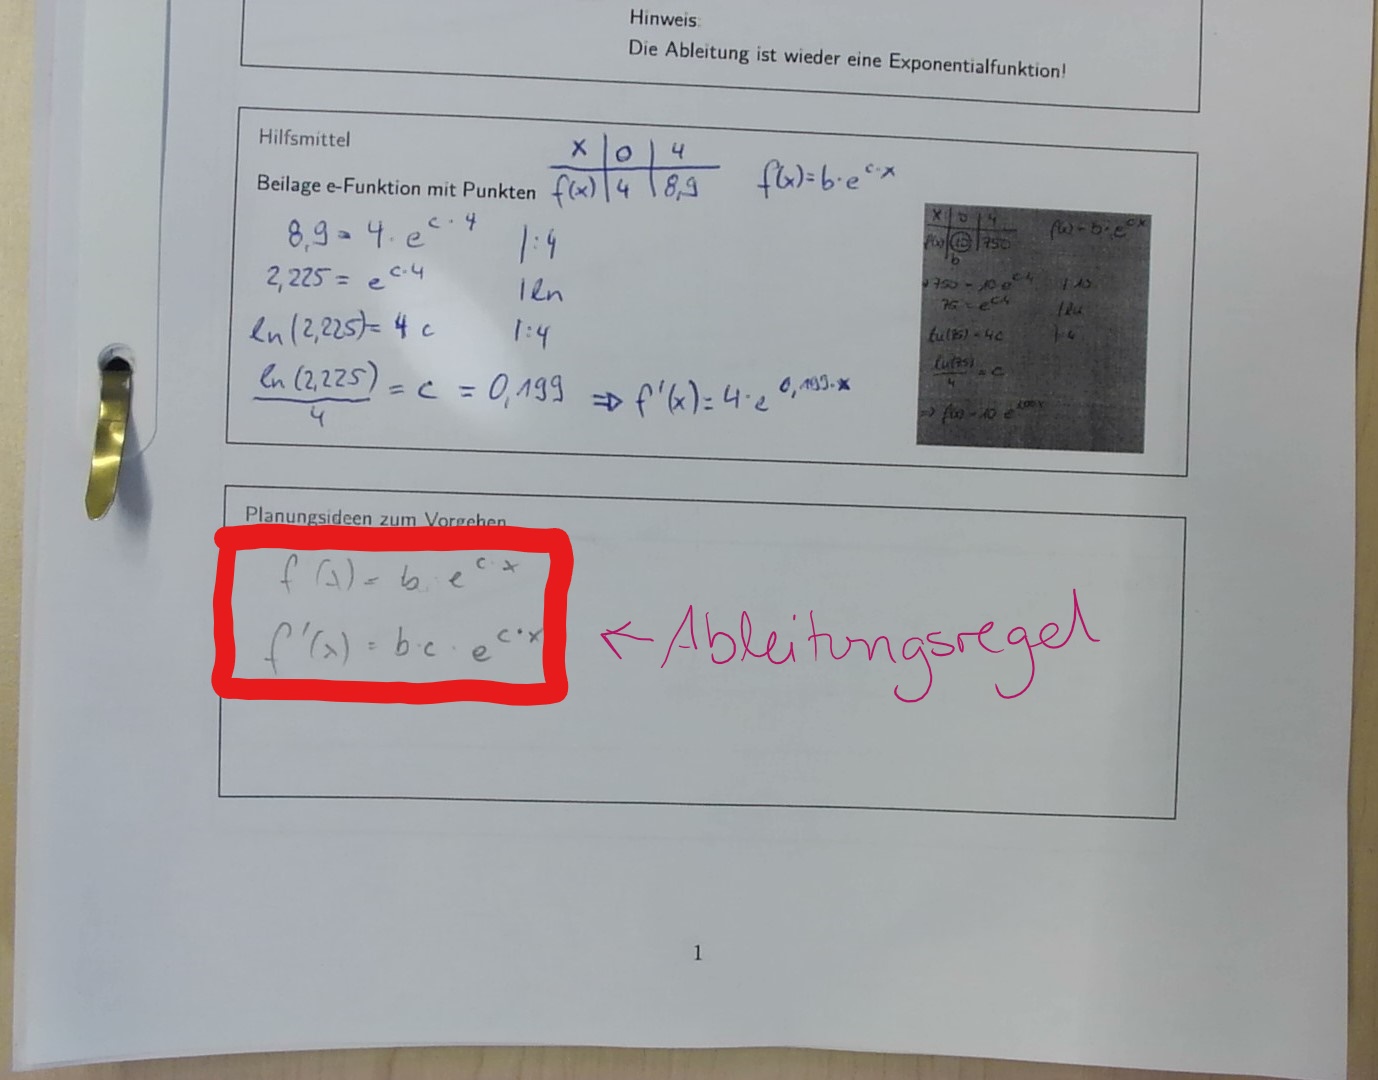 Hinweis:
Die Ableitung ist wieder eine Exponentialfunktion!
Hilfsmittel
x | 0 | 4
Beilage e-Funktion mit Punkten f(x) | 4 | 8,9 f(x)=b·e^c·x
8,9 = 4·e^c·4 |:4
2,225 = e^c·4 |ln
ln(2,225)= 4 c |:4
ln(2,225)/4 = c = 0,199 ⇒ f'(x)= 4·e^0,199·x
x | 0 | 4 f(x) = b·e^cx
f(x) | 10 | 750
b
750 = 10·e^c·4 |:10
75 = e^c·4 |ln
ln(75) = 4c |:4
ln(75)/4 = c
⇒ f(x) = 10·e
Planungsideen zum Vorgehen
f(x) = b·e^c·x
f'(x) = b·c·e^c·x ← Ableitungsregel
1